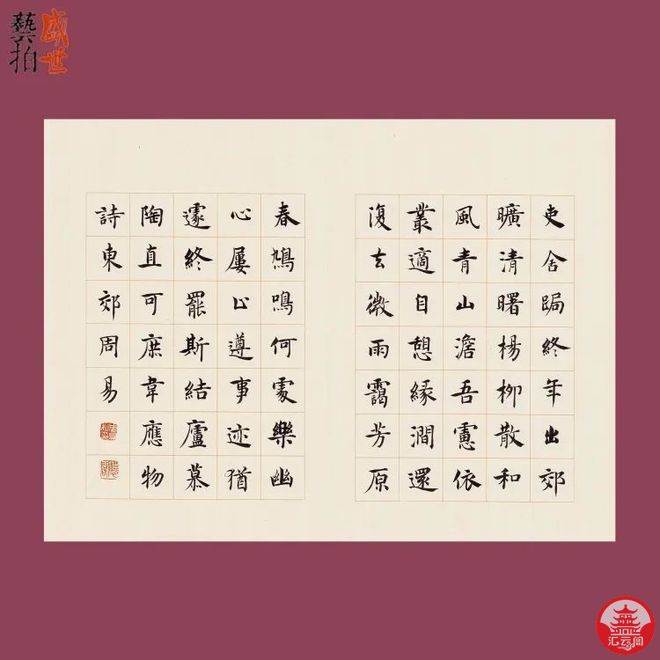 盛世
藝拍
吏舍跼終年出郊
曠清曙楊柳散和
風青山澹吾慮依
叢適自憩緣澗還
復去微雨靄芳原
春鳩鳴何處樂幽
心屢止遵事迹猶
遽終罷斯結廬慕
陶直可庶韋應物
詩東郊周易
汇云阁